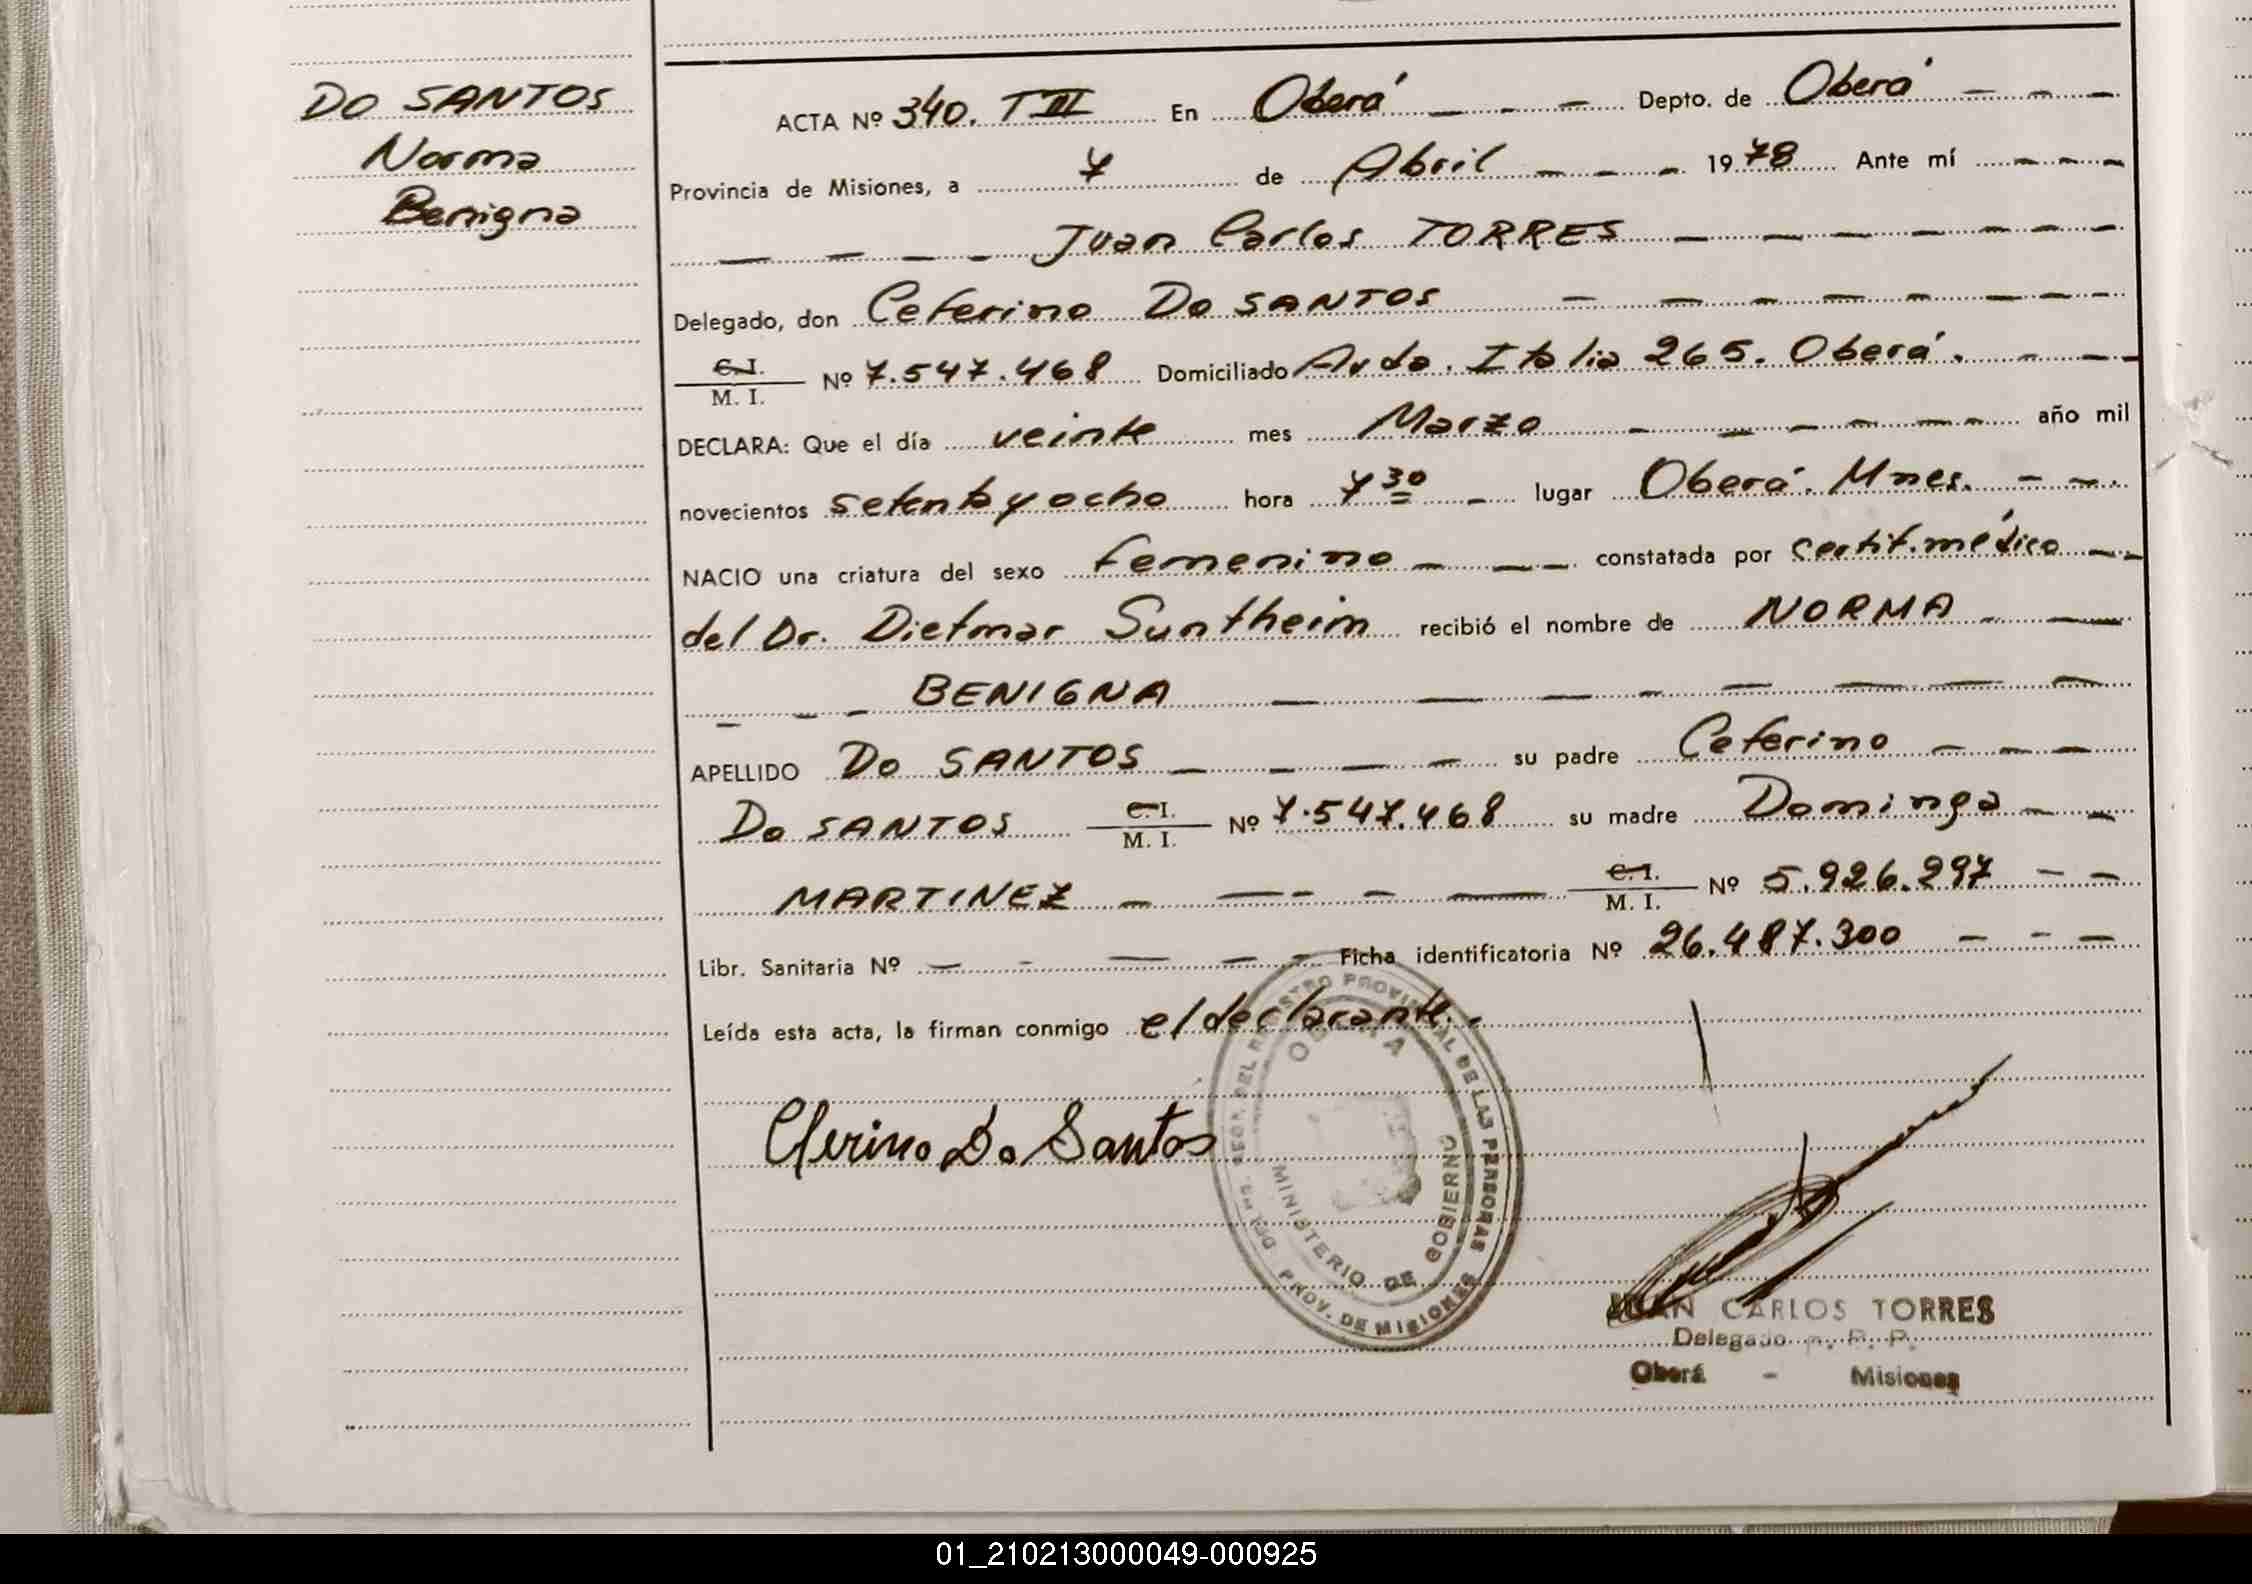 DO SANTOS
Norma
Benigna
ACTA Nº 340. T III En Oberá Depto. de Oberá
Provincia de Misiones, a 7 de Abril 1978 Ante mí
Juan Carlos TORRES
Delegado, don Ceferino Do SANTOS
C.I. / M. I. Nº 7.547.468 Domiciliado Avda. Italia 265. Oberá.
DECLARA: Que el día veinte mes Marzo año mil
novecientos setenta y ocho hora 7 30 lugar Oberá. Mnes.
NACIO una criatura del sexo femenino constatada por certif. médico
del Dr. Dietmar Suntheim recibió el nombre de NORMA
BENIGNA
APELLIDO Do SANTOS su padre Ceferino
Do SANTOS C.I. / M. I. Nº 7.547.468 su madre Dominga
MARTINEZ C.I. / M. I. Nº 5.926.297
Libr. Sanitaria Nº Ficha identificatoria Nº 26.487.300
Leída esta acta, la firman conmigo el declarante.
Ceferino Do Santos
REGISTRO PROVINCIAL DE LAS PERSONAS
OBERA
MINISTERIO DE GOBIERNO
PROV. DE MISIONES
JUAN CARLOS TORRES
Delegado R. P. P.
Oberá - Misiones
01_210213000049-000925